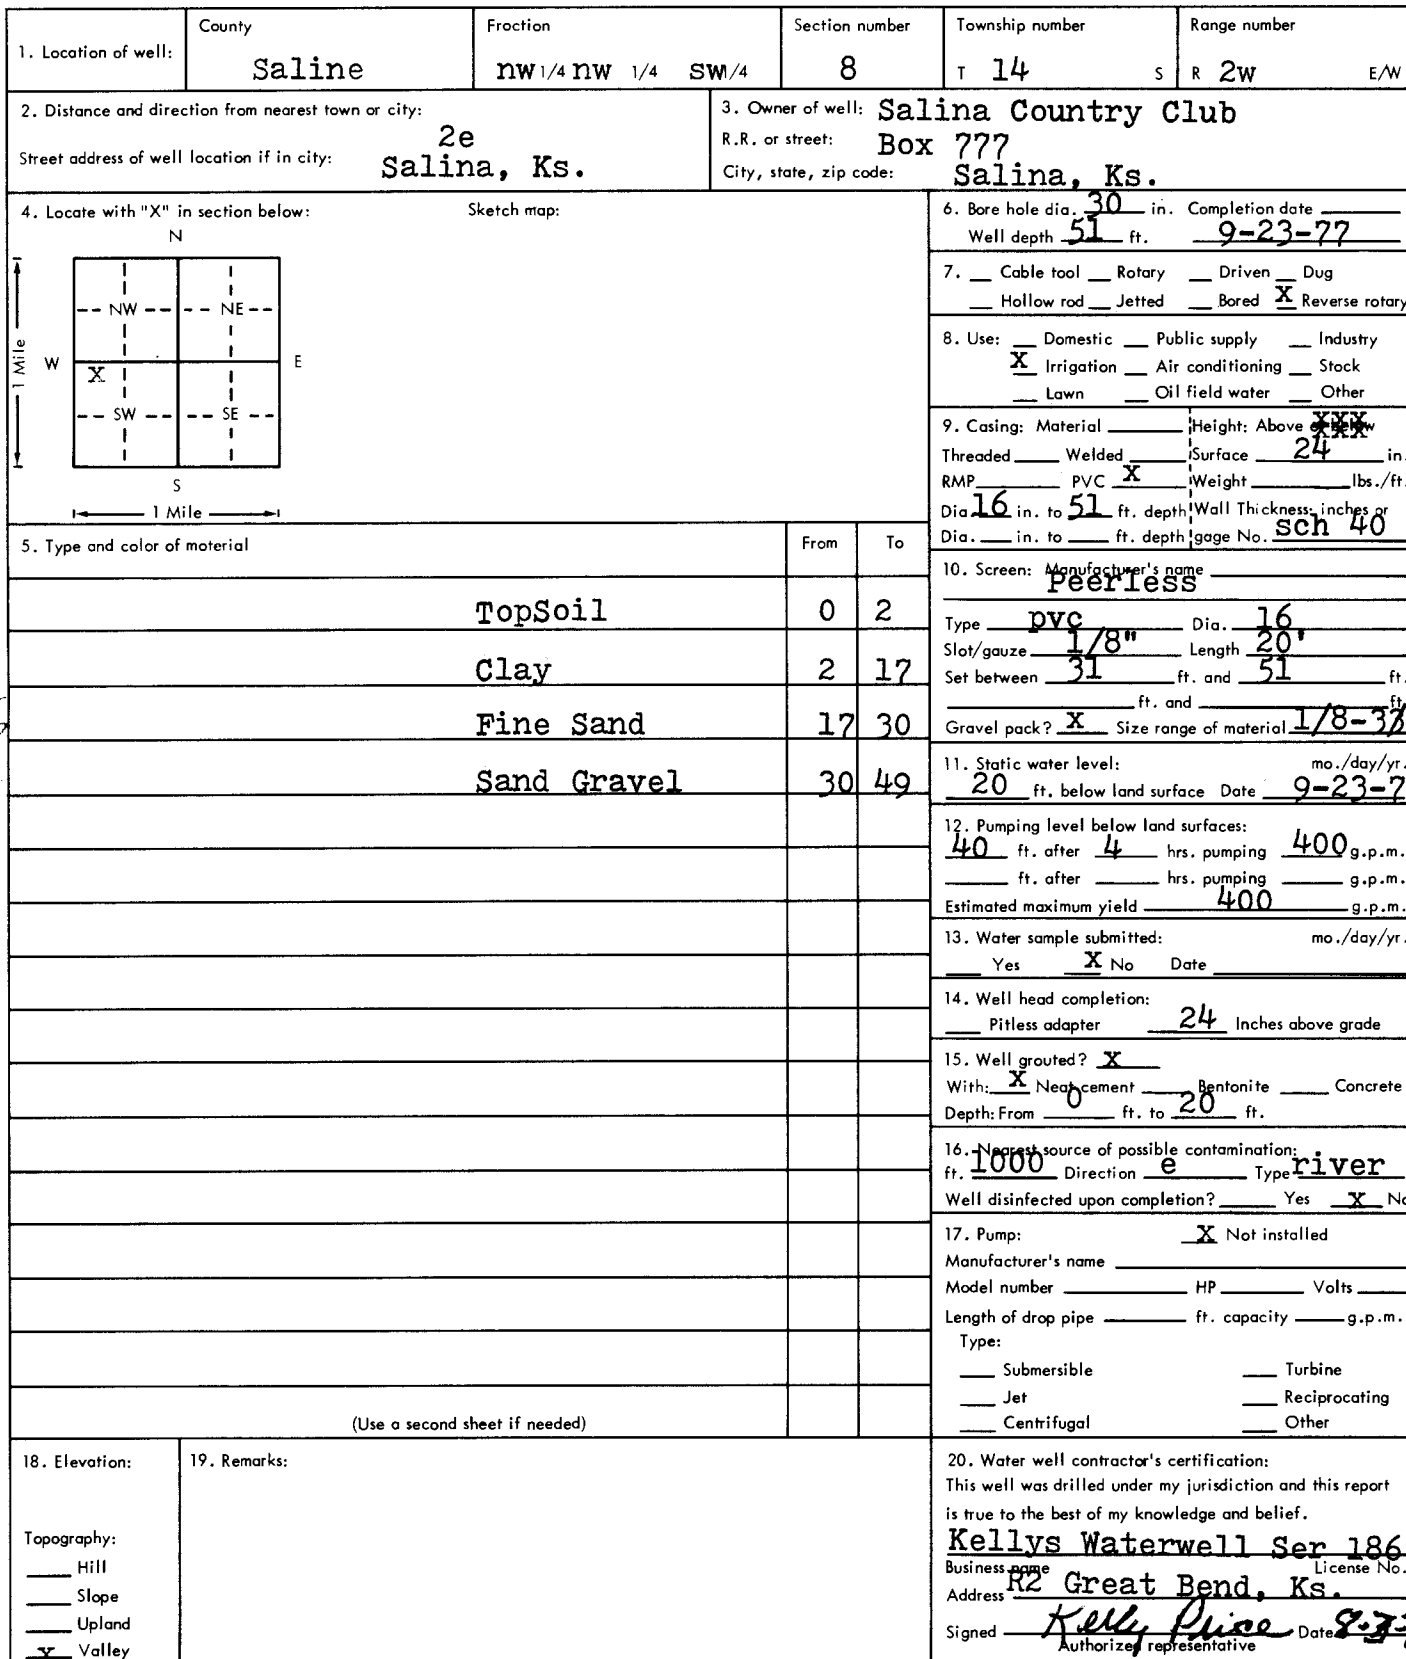 1. Location of well:
County
Saline
Fraction
nw 1/4 nw 1/4 sw 1/4
Section number
8
Township number
T 14 S
Range number
R 2w E/W
2. Distance and direction from nearest town or city:
2e
Street address of well location if in city: Salina, Ks.
3. Owner of well: Salina Country Club
R.R. or street: Box 777
City, state, zip code: Salina, Ks.
4. Locate with "X" in section below: Sketch map:
N
NW NE
W E
X
SW SE
S
1 Mile
1 Mile
5. Type and color of material From To
TopSoil 0 2
Clay 2 17
Fine Sand 17 30
Sand Gravel 30 49
(Use a second sheet if needed)
6. Bore hole dia. 30 in. Completion date
Well depth 51 ft. 9-23-77
7. Cable tool Rotary Driven Dug
Hollow rod Jetted Bored X Reverse rotary
8. Use: Domestic Public supply Industry
X Irrigation Air conditioning Stock
Lawn Oil field water Other
9. Casing: Material Height: Above XXX
Threaded Welded Surface 24 in.
RMP PVC X Weight lbs./ft.
Dia. 16 in. to 51 ft. depth Wall Thickness: inches or
Dia. in. to ft. depth gage No. sch 40
10. Screen: Manufacturer's name
Peerless
Type pvc Dia. 16
Slot/gauze 1/8" Length 20'
Set between 31 ft. and 51 ft.
ft. and ft.
Gravel pack? X Size range of material 1/8-3/
11. Static water level: mo./day/yr.
20 ft. below land surface Date 9-23-7
12. Pumping level below land surfaces:
40 ft. after 4 hrs. pumping 400 g.p.m.
ft. after hrs. pumping g.p.m.
Estimated maximum yield 400 g.p.m.
13. Water sample submitted: mo./day/yr.
Yes X No Date
14. Well head completion:
Pitless adapter 24 Inches above grade
15. Well grouted? X
With: X Neat cement Bentonite Concrete
Depth: From 0 ft. to 20 ft.
16. Nearest source of possible contamination:
ft. 1000 Direction e Type river
Well disinfected upon completion? Yes X No
17. Pump: X Not installed
Manufacturer's name
Model number HP Volts
Length of drop pipe ft. capacity g.p.m.
Type:
Submersible Turbine
Jet Reciprocating
Centrifugal Other
18. Elevation:
Topography:
Hill
Slope
Upland
X Valley
19. Remarks:
20. Water well contractor's certification:
This well was drilled under my jurisdiction and this report
is true to the best of my knowledge and belief.
Kellys Waterwell Ser 186
Business name License No.
Address R2 Great Bend, Ks.
Signed Kelly Price Date
Authorized representative